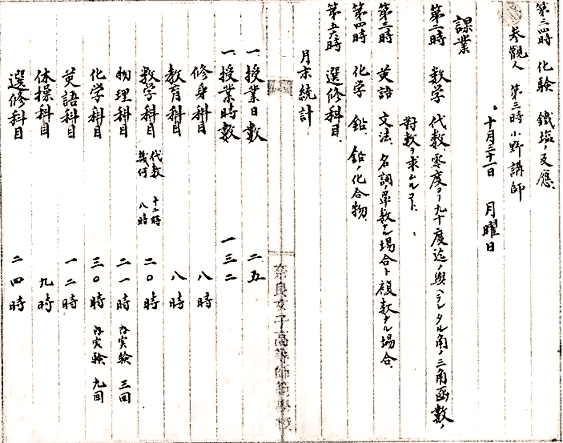 第三四時 化験 鐵塩ノ反應.
参觀人 第三時小野講師
十月三十一日 月曜日
課業
第二時 数学 代数零度ヨリ九十度迄ノ與ヘラレタル角ノ三角函数ノ
対数ヲ求ムルコト.
第三時 英語 文法、名詞ノ單数ナル場合ト複数ナル場合.
第四時 化学 鉛、鉛ノ化合物.
第五六時 選修科目.
月末統計.
一 授業日数 二五
一 授業時数 一三二
修身科目 八時
教育科目 八時
数学科目 代数 十二時 幾何 八時 二〇時
物理科目 二一時 内実験 三回
化学科目 三〇時 内実験 九回
英語科目 一二時
体操科目 九時
選修科目 二四時
奈良女子高等師範學校